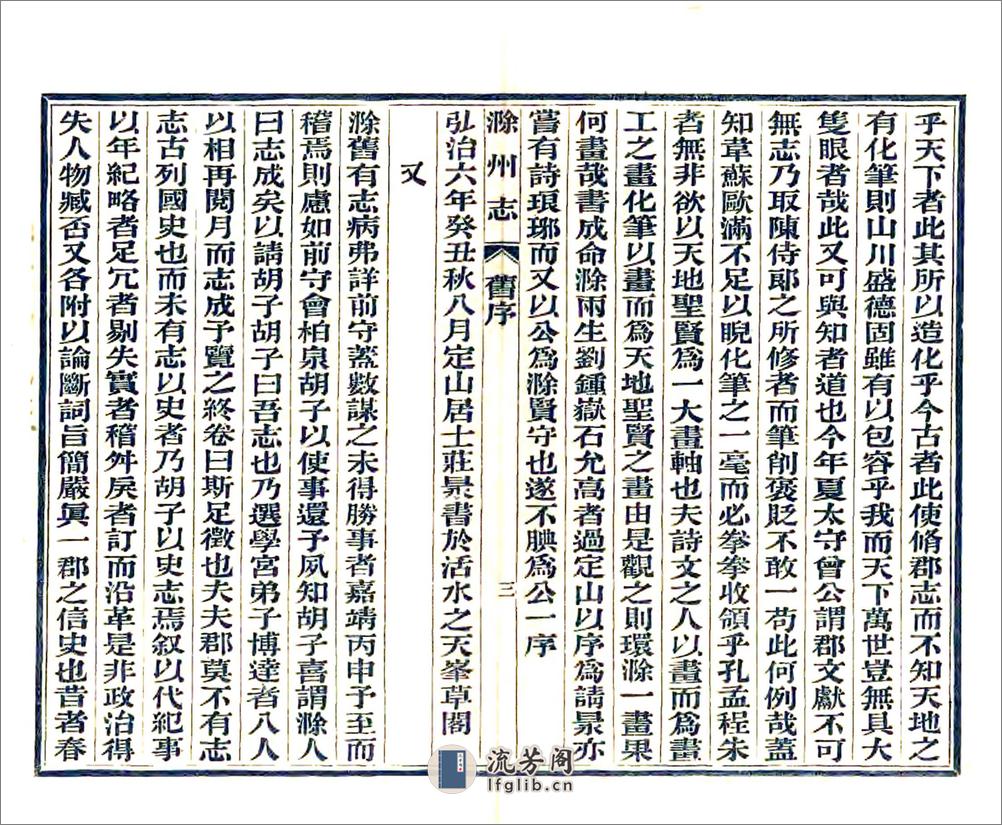 乎天下者此其所以造化乎今古者此使脩郡志而不知天地之
有化筆則山川盛德固雖有以包容乎我而天下萬世豈無具大
隻眼者哉此又可與知者道也今年夏太守曾公謂郡文獻不可
無志乃取陳侍郎之所修者而筆削褒貶不敢一苟此何例哉蓋
知韋蘇歐滿不足以睨化筆之一毫而必拳拳收領乎孔孟程朱
者無非欲以天地聖賢為一大畫軸也夫詩文之人以畫而為畫
工之畫化筆以畫而為天地聖賢之畫由是觀之則環滁一畫果
何畫哉書成命滁兩生劉鍾嶽石允高者過定山以序為請㫤亦
嘗有詩琅琊而又以公為滁賢守也遂不腆為公一序
滁州志 舊序 三
弘治六年癸丑秋八月定山居士莊㫤書於活水之天峯草閣
又
滁舊有志病弗詳前守蓋數謀之未得勝事者嘉靖丙申予至而
稽焉則慮如前守會柏泉胡子以使事還予夙知胡子喜謂滁人
曰志成矣以請胡子胡子曰吾志也乃選學宮弟子博達者八人
以相再閱月而志成予覽之終卷曰斯足徵也夫夫郡莫不有志
志古列國史也而未有志以史者乃胡子以史志焉叙以代紀事
以年紀略者足冗者剔失實者稽舛戾者訂而沿革是非政治得
失人物臧否又各附以論斷詞旨簡嚴眞一郡之信史也昔者春
流芳阁
lfglib.cn